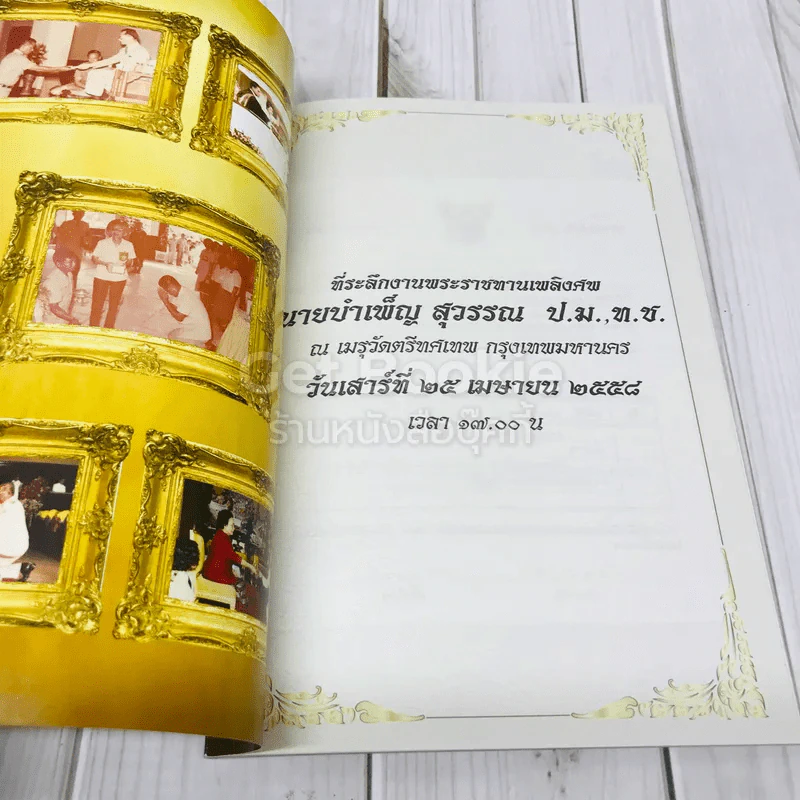 ที่ระลึกงานพระราชทานเพลิงศพ
นายบำเพ็ญ สุวรรณ ป.ม.,ท.ช.
ณ เมรุวัดตรีทศเทพ กรุงเทพมหานคร
Get Bookie
วันเสาร์ที่ ๒๕ เมษายน ๒๕๕๘
ร้านหนังสือบุ๊คกี้
เวลา ๑๗.๐๐ น